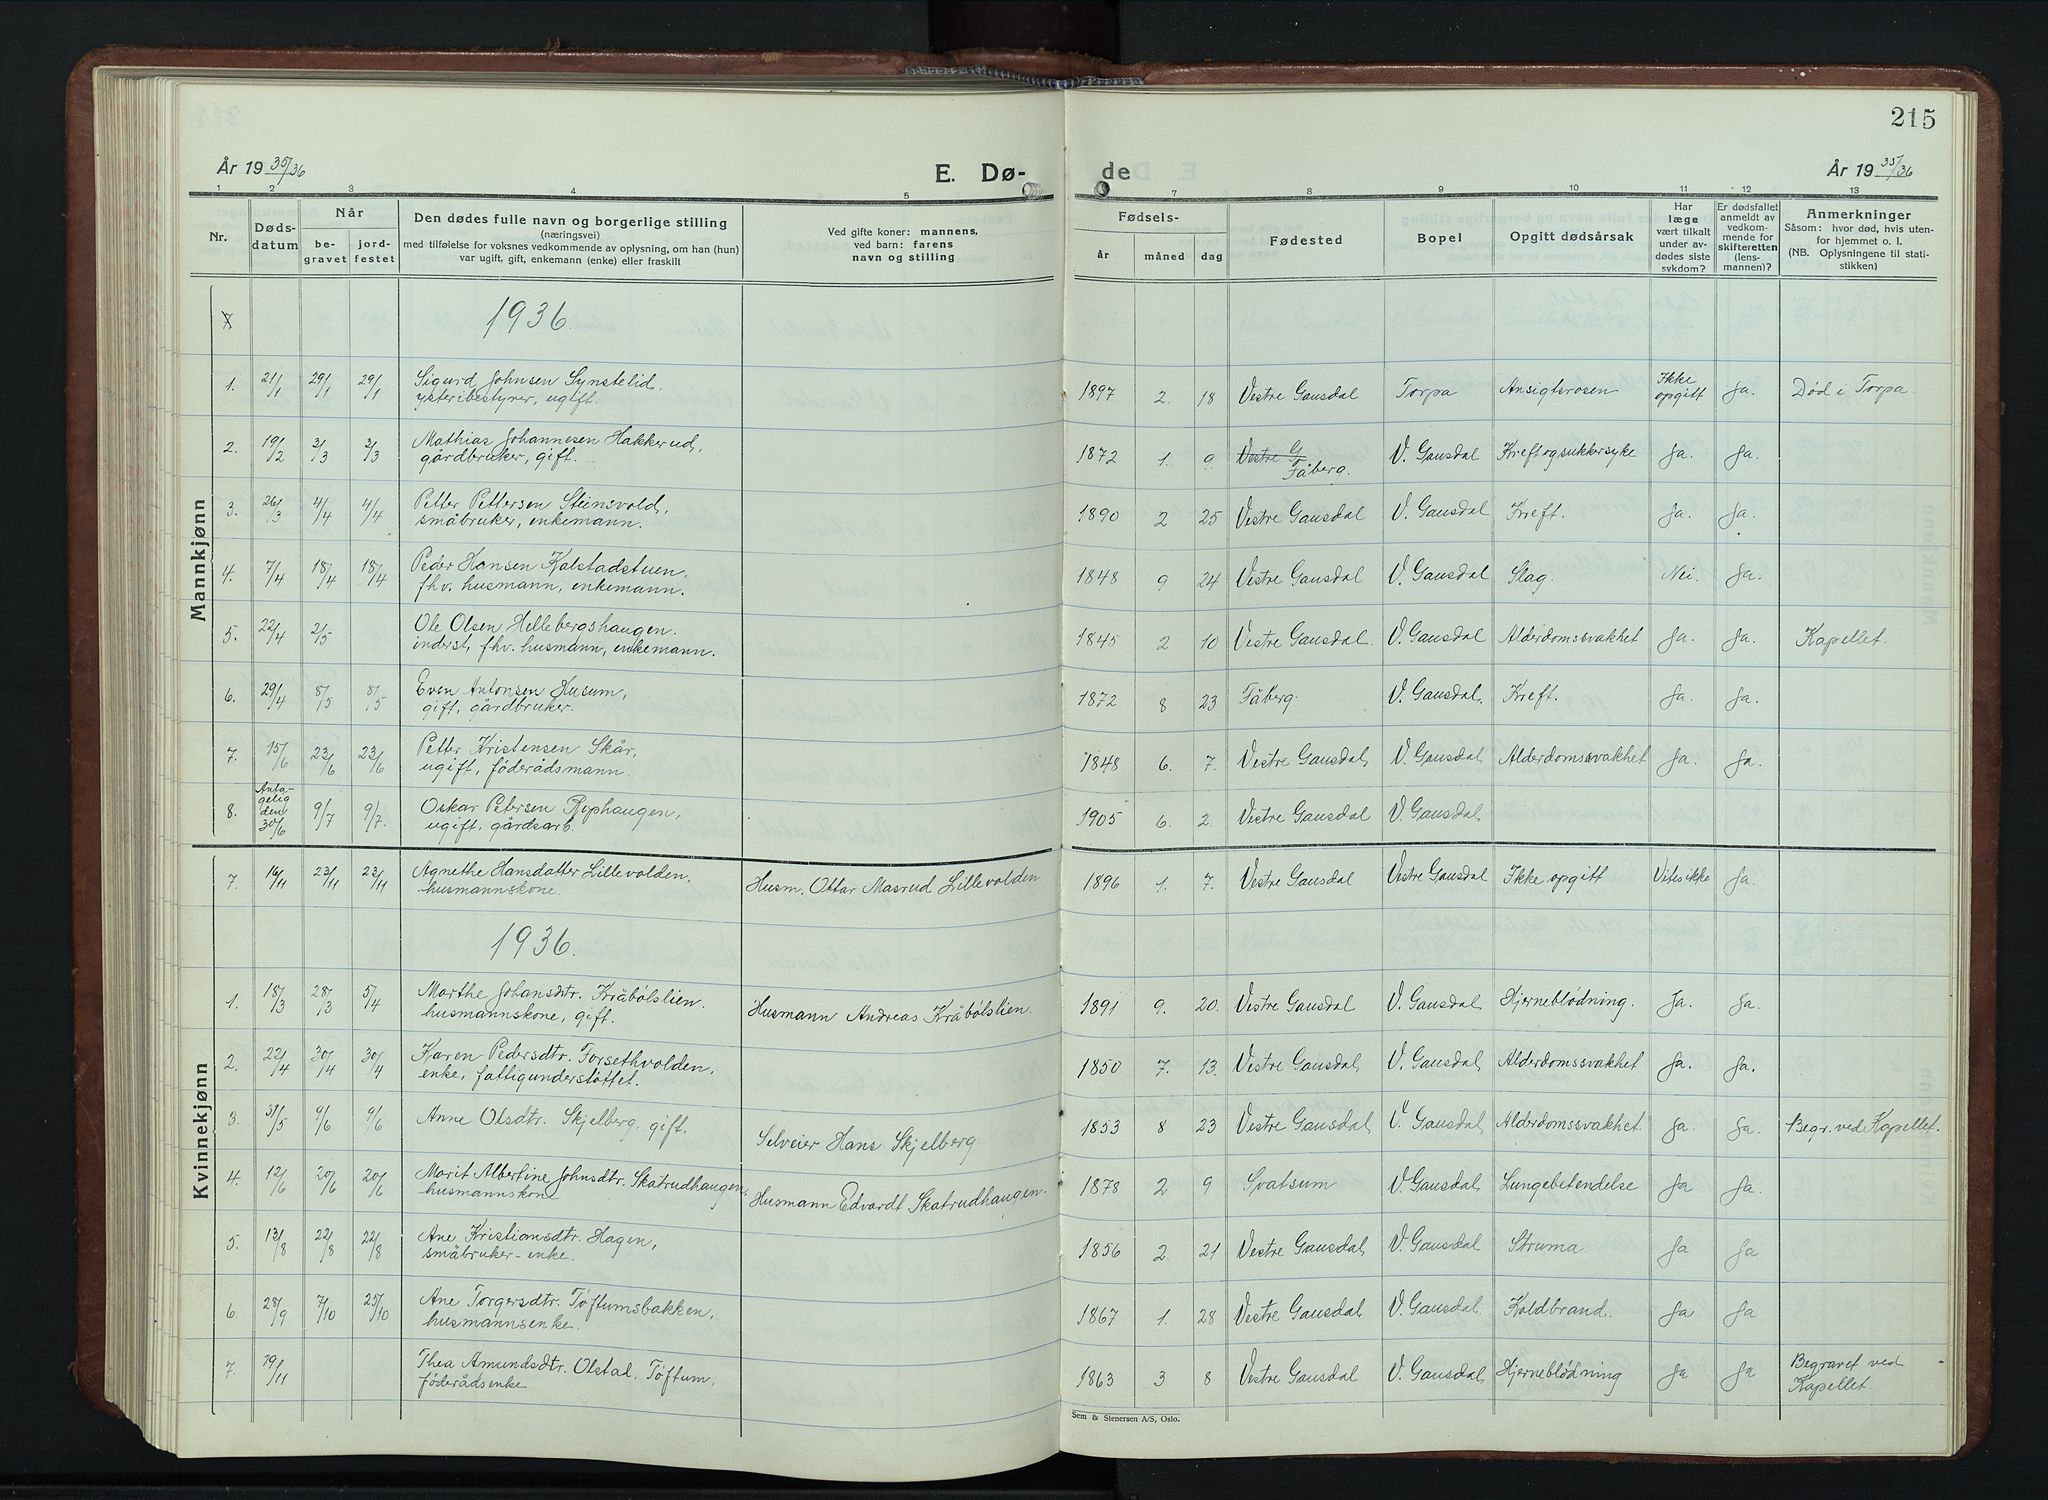 215
År 19 35/36
E. Dø-
de
År 19 35/36
1 2 3 4 5 7 8 9 10 11 12 13
Nr.
Døds-
datum
Når
be-
gravet
jord-
festet
Den dødes fulle navn og borgerlige stilling
(næringsvei)
med tilføielse for voksnes vedkommende av oplysning, om han (hun)
var ugift, gift, enkemann (enke) eller fraskilt
Ved gifte koner: mannens,
ved barn: farens
navn og stilling
Fødsels-
år måned dag
Fødested
Bopel
Opgitt dødsårsak
Har
læge
vært tilkalt
under av-
dødes siste
sykdom?
Er dødsfallet
anmeldt av
vedkom-
mende for
skifteretten
(lens-
mannen)?
Anmerkninger
Såsom: hvor død, hvis uten-
for hjemmet o. l.
(NB. Oplysningene til stati-
stikken)
Mannkjønn
1936.
1. 21/1 29/1 29/1 Sigurd Johnsen Synstelid, 1897 2. 18 Vestre Gausdal Torpa Ansigtsrosen Ikke opgitt Ja. Død i Torpa.
ysteribestyrer, ugift.
2. 19/2 3/3 3/3 Mathias Johannesen Hakkerud, 1872 1. 9. Vestre G Fåberg. V. Gausdal Kreft og sukkersyke Ja. Ja.
gårdbruker, gift.
3. 26/3 4/4 4/4 Petter Pettersen Steinsvold, 1890 2 25 Vestre Gausdal V. Gausdal Kreft. Ja. Ja.
småbruker, enkemann.
4. 7/4 18/4 18/4 Peder Hansen Kalstadstuen, 1848 9 24 Vestre Gausdal V. Gausdal Slag. Nei. Ja.
fhv. husmann, enkemann.
5. 22/4 2/5 Ole Olsen Hellebergshaugen. 1845 2 10 Vestre Gausdal V. Gausdal Alderdomssvakhet Ja. Ja. Kapellet.
inderst, fhv. husmann, enkemann.
6. 29/4 8/5 8/5 Even Antonsen Husum, 1872 8 23 Fåberg. V. Gausdal. Kreft. Ja. Ja.
gift, gårdbruker.
7. 15/6 23/6 23/6 Petter Kristensen Skår, 1848 6. 7. Vestre Gausdal V. Gausdal Alderdomssvakhet Ja. Ja.
ugift, föderådsmann.
8. Anta-
gelig
den
30/6 9/7 9/7. Oskar Petersen Rophaugen, 1905 6. 2. Vestre Gausdal V. Gausdal
ugift, gårdsarb.
Kvinnekjønn
7. 16/11 23/11 23/11 Agnethe Hansdatter Lillevolden, Husm. Ottar Masrud Lillevolden 1896 1. 7. Vestre Gausdal Vestre Gausdal Ikke opgitt Vites ikke Ja.
husmannskone.
1936.
1. 18/3 28/3 5/4 Marthe Johansdtr. Kråbölslien. Husmann Andreas Kråbölslien. 1891 9. 20. Vestre Gausdal V. Gausdal Hjerneblödning. Ja. Ja.
husmannskone, gift.
2. 22/4 30/4 30/4 Karen Pedersdtr. Forsethvolden, 1850 7. 13. Vestre Gausdal V. Gausdal Alderdomssvakhet Ja. Ja.
enke, fattigunderstöttet.
3. 31/5 9/6 9/6 Anne Olsdtr. Skjelberg, gift. Selveier Hans Skjelberg 1853 8 23 Vestre Gausdal V. Gausdal Alderdomssvakhet. Ja. Ja. Begr. ved Kapellet.
4. 12/6 20/6 20/6 Marit Albertine Johnsdtr. Skatrudhaugen, Husmann Edvardt Skatrudhaugen. 1878 2 9 Svatsum V. Gausdal Lungebetendelse Ja Ja.
husmannskone
5. 13/8 22/8 22/8 Ane Kristiansdtr. Hagen, 1856 2. 21 Vestre Gausdal V. Gausdal Struma. Ja Ja
småbruker-enke.
6. 28/9 7/10 25/10 Ane Torgersdtr. Töftumsbakken, 1867 1. 28 Vestre Gausdal V. Gausdal. Koldbrand. Ja Ja
husmannsenke.
7. 19/11 Thea Amundsdtr. Olstal, Töftum, 1863 3 8 Vestre Gausdal V. Gausdal Hjerneblödning Ja Ja Begravet ved
föderådsenke Kapellet.
Sem & Stenersen A/S, Oslo.